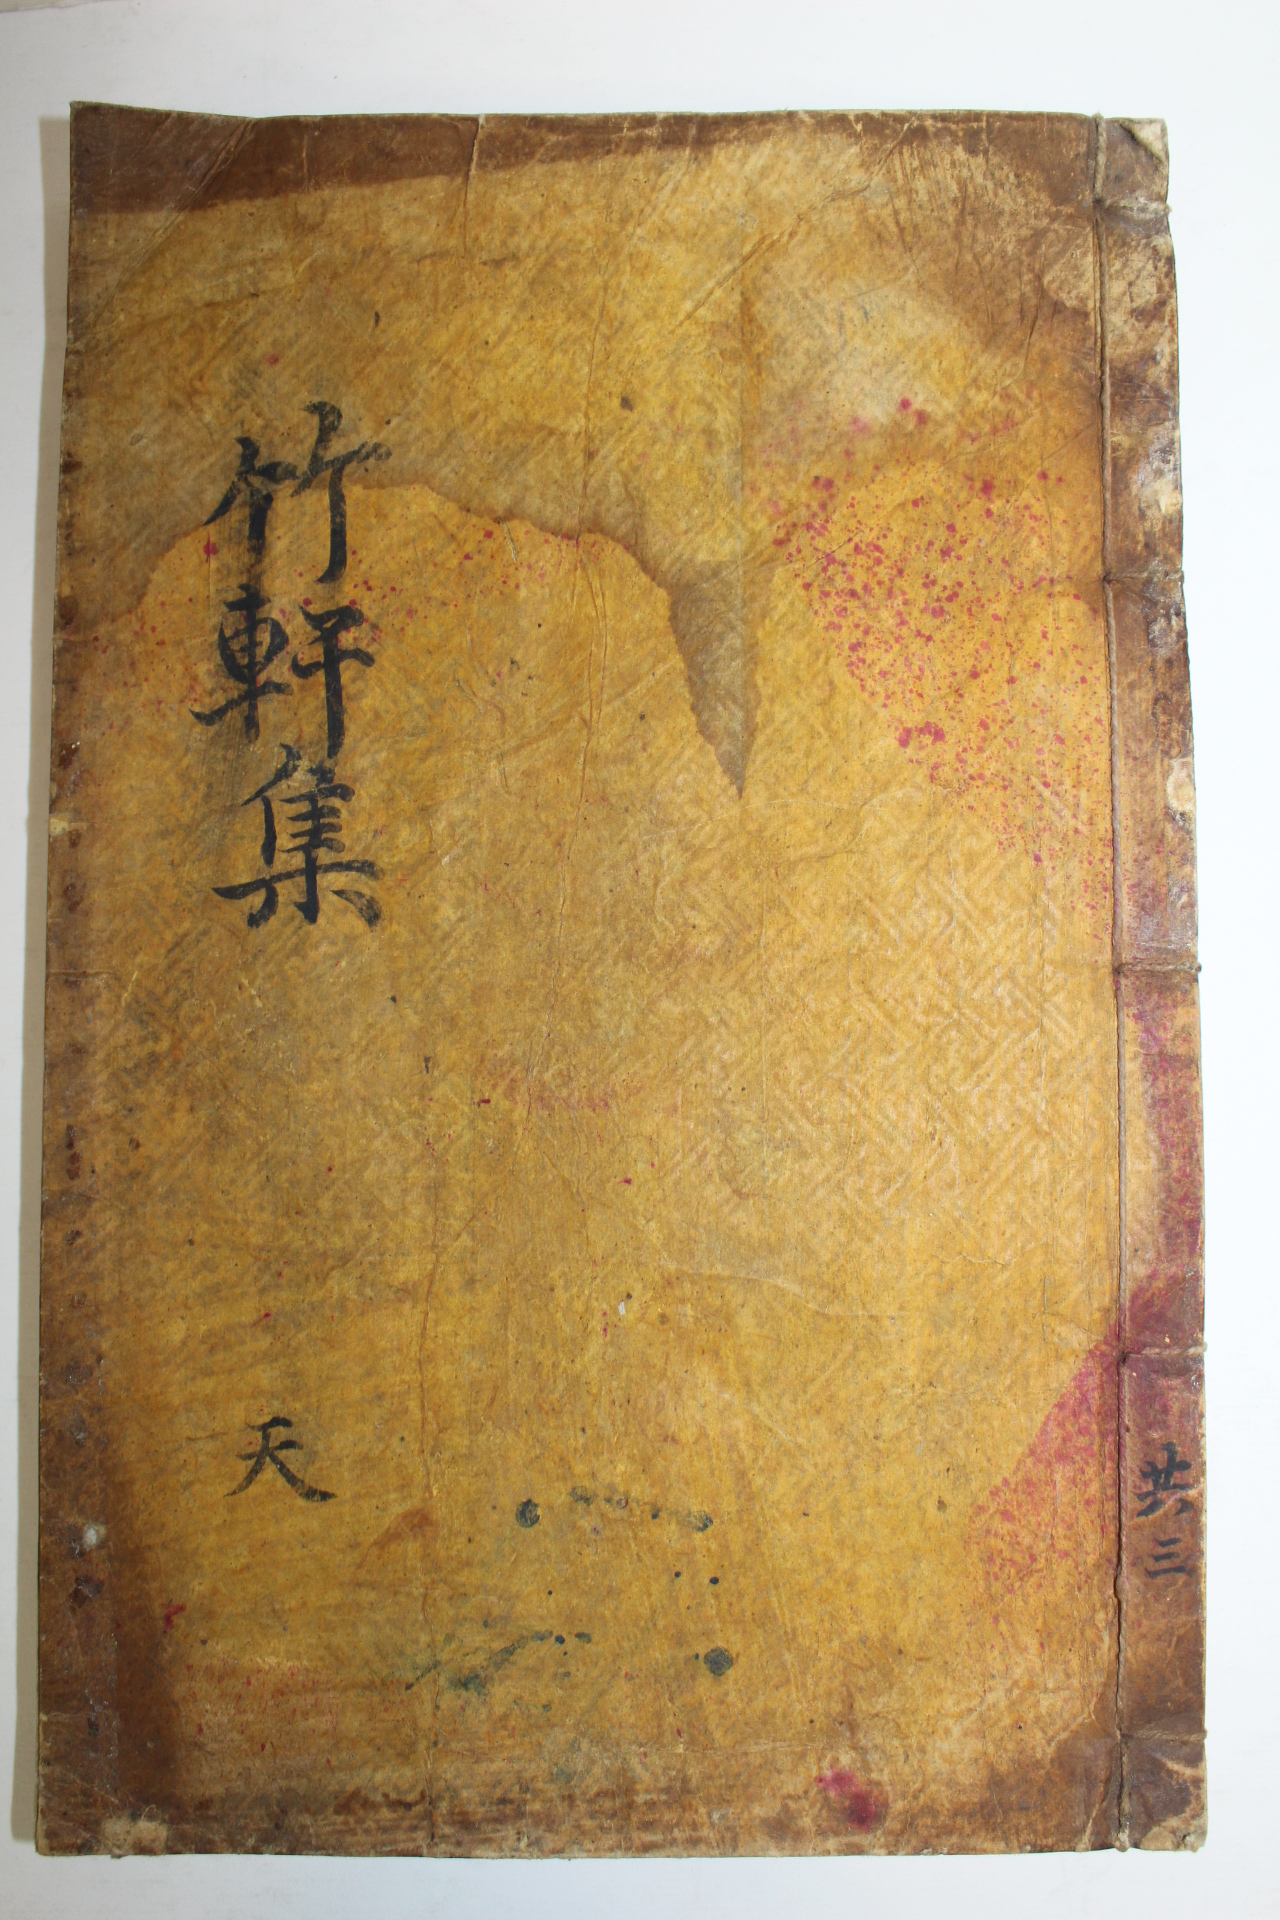 竹軒集
天
共三